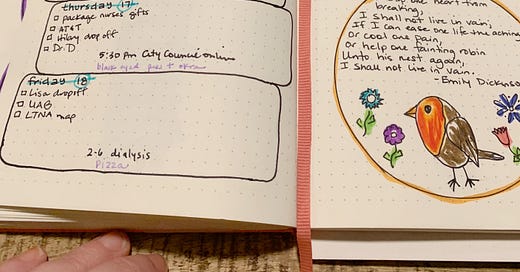 thursday 17
package nurses gifts
AT&T
Hilary drop off
Dr. D
5:30 pm City Council online
black eyed peas +
friday 18
Lisa dropoff
UAB
LTNA map
2-6 dialysis
Pizza
one heart from
breaking,
I shall not live in vain;
If I can ease one life the aching
Or cool one pain,
or help one fainting robin
Unto his nest again,
I shall not live in vain.
-Emily Dickinson